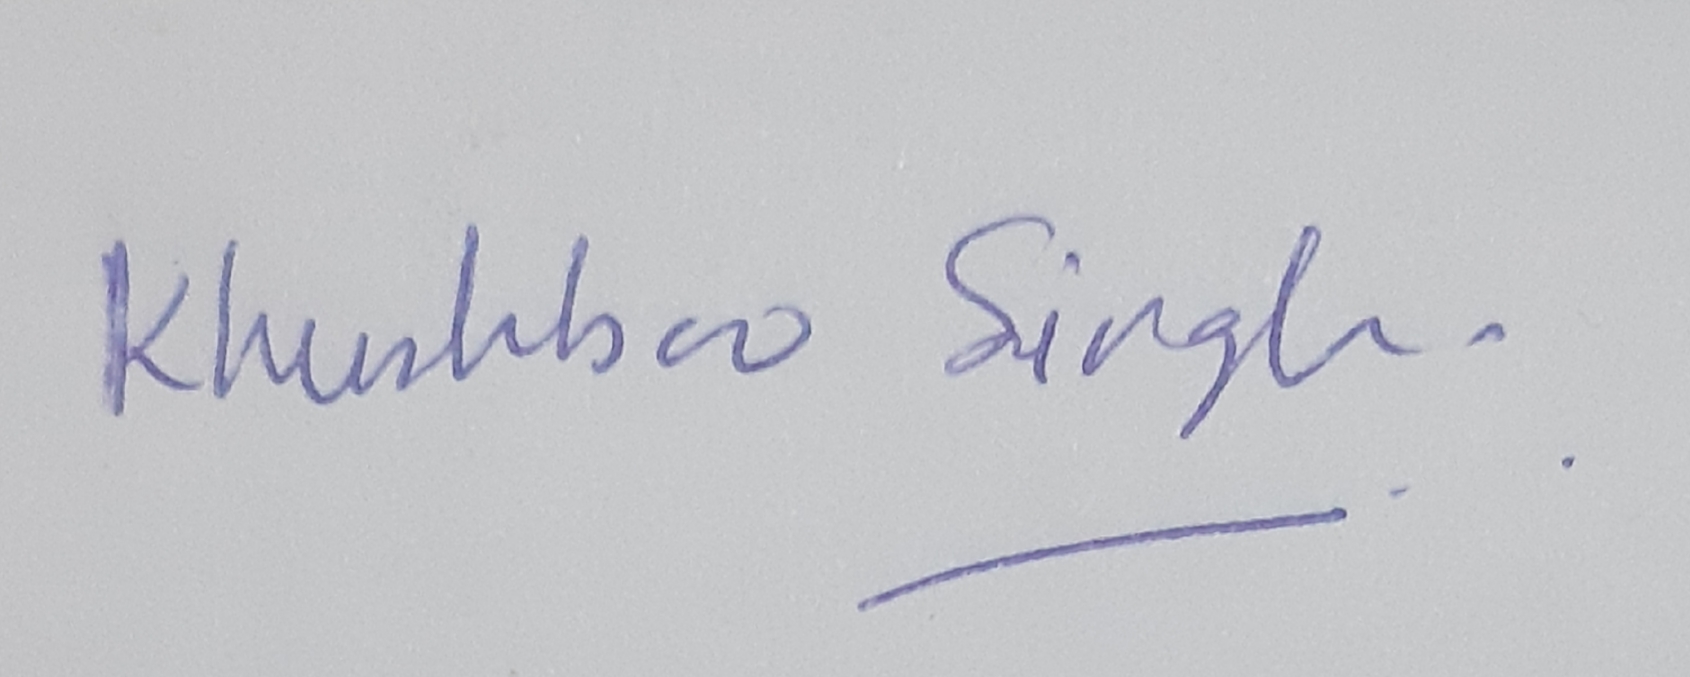 Khushboo Singh.